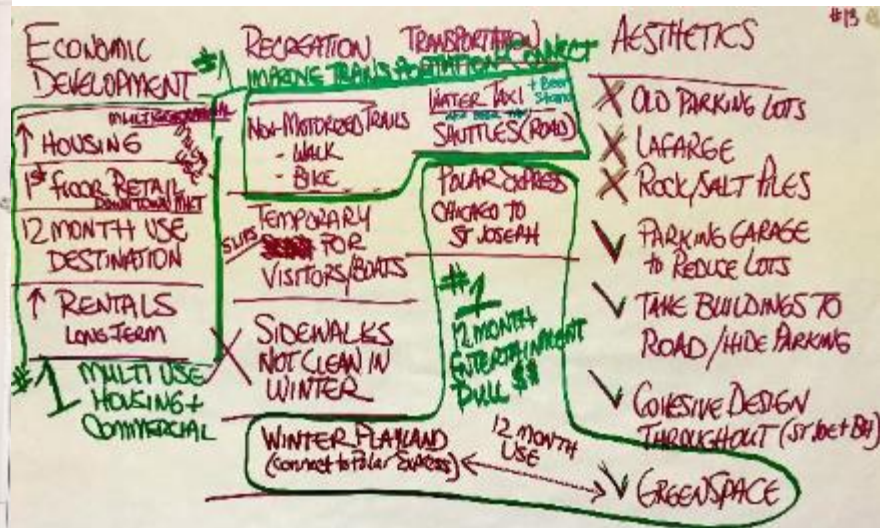 #13
ECONOMIC
DEVELOPMENT
MULTIGENERATIONAL
↑ HOUSING
1st FLOOR RETAIL
DOWNTOWN
12 MONTH USE
DESTINATION
↑ RENTALS
LONG TERM
#1 MULTI USE
HOUSING +
COMMERCIAL
RECREATION TRANSPORTATION
#1
NON-MOTORIZED TRAILS
- WALK
- BIKE
TEMPORARY
SLIPS FOR
VISITORS/BOATS
SIDEWALKS
NOT CLEAN IN
WINTER
WINTER PLAYLAND
(connect to Polar Express)
WATER TAXI
SHUTTLES (ROAD)
POLAR EXPRESS
CHICAGO TO
ST JOSEPH
#1
12 MONTH
ENTERTAINMENT
12 MONTH
USE
AESTHETICS
X OLD PARKING LOTS
X LAFARGE
X ROCK/SALT PILES
✓ PARKING GARAGE
to REDUCE LOTS
✓ TAKE BUILDINGS TO
ROAD/HIDE PARKING
✓ COHESIVE DESIGN
THROUGHOUT (ST JOE + BH)
✓ GREENSPACE